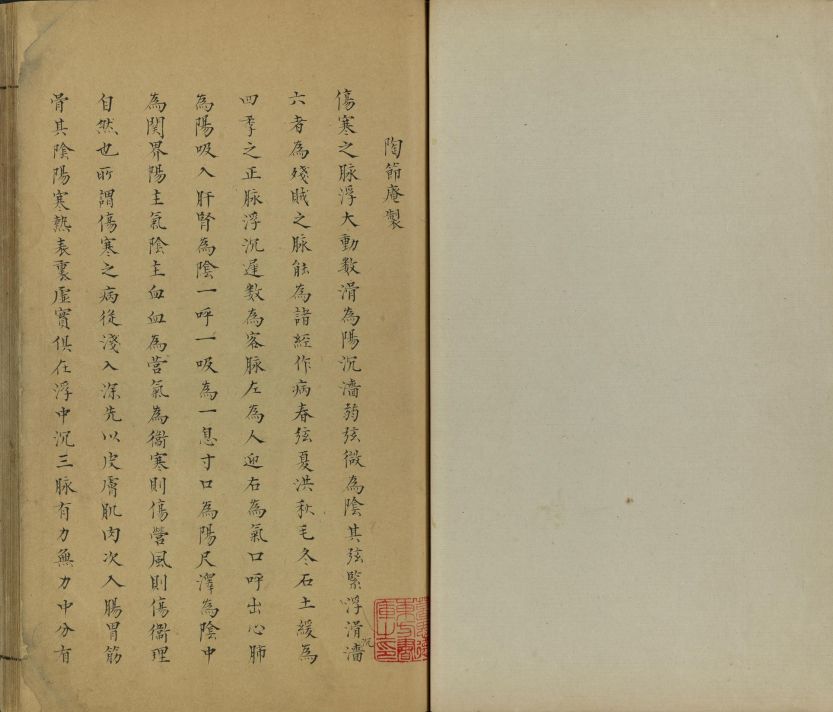 陶節庵製
傷寒之脉浮大動數滑為陽沉濇弱弦微為陰其弦緊浮滑濇沉
六者為殘賊之脉能為諸經作病春弦夏洪秋毛冬石土緩為
四季之正脉浮沉遲數為客脉左為人迎右為氣口呼出心肺
為陽吸入肝腎為陰一呼一吸為一息寸口為陽尺澤為陰中
為関界陽主氣陰主血血為营氣為衛寒則傷營風則傷衛理
自然也所謂傷寒之病從淺入深先以皮膚肌肉次入腸胃筋
骨其陰陽寒熱表裏虛實俱在浮中沉三脉有力無力中分有